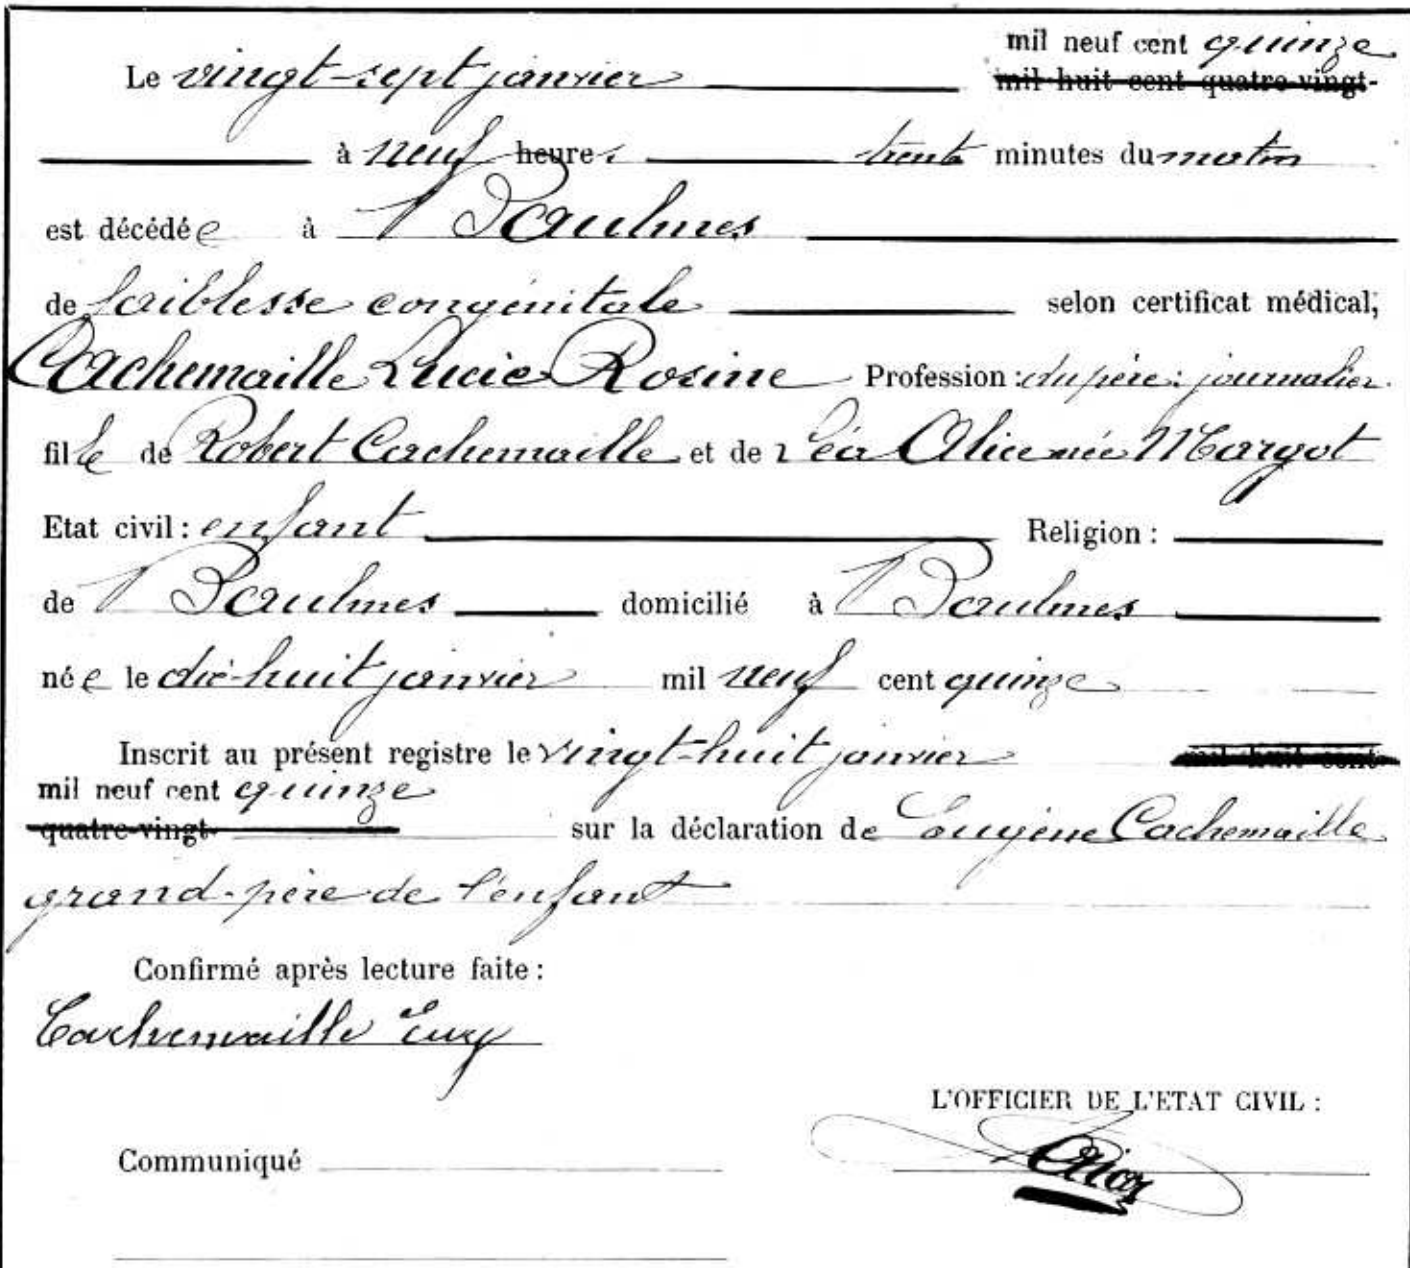 mil neuf cent quinze
Le vingt-sept janvier mil huit cent quatre-vingt-
à neuf heures trente minutes du matin
est décédée à Baulmes
de faiblesse congénitale selon certificat médical,
Cachemaille Lucie Rosine Profession : du père : journalier.
fille de Robert Cachemaille et de Léa Alice née Margot
Etat civil : enfant Religion :
de Baulmes domicilié à Baulmes
née le dix-huit janvier mil neuf cent quinze
Inscrit au présent registre le vingt-huit janvier mil huit cent
mil neuf cent quinze
quatre-vingt- sur la déclaration de Eugène Cachemaille
grand-père de l'enfant
Confirmé après lecture faite :
Cachemaille Eug
L'OFFICIER DE L'ETAT CIVIL :
Communiqué